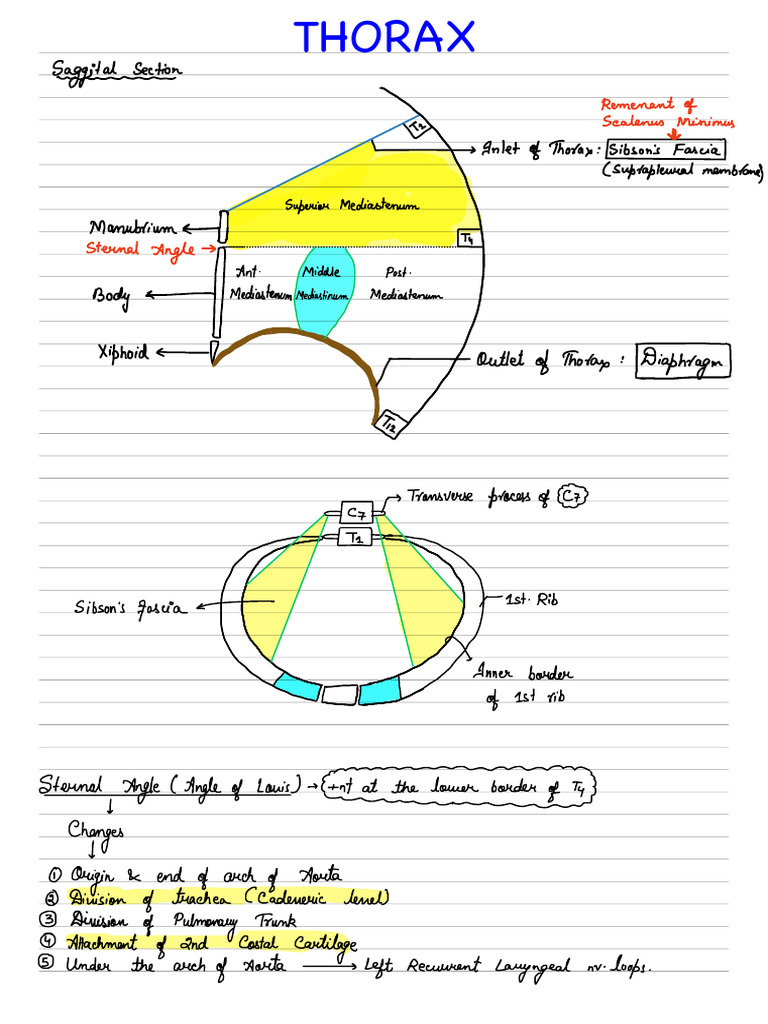 THORAX
Saggital Section
Remenant of
Scalenus Minimus
T2
Inlet of Thorax : Sibson's Fascia
(Suprapleural membrane)
Superior Mediastenum
Manubrium
T4
Sternal Angle
Ant. Middle Post.
Mediastenum Mediastinum Mediastenum
Body
Xiphoid
Outlet of Thorax : Diaphragm
T12
Transverse process of C7
C7
T1
Sibson's Fascia
1st. Rib
Inner border
of 1st rib
Sternal Angle (Angle of Louis) → +nt at the lower border of T4
Changes
① Origin & end of arch of Aorta
② Division of trachea (Cadeveric level)
③ Division of Pulmonary Trunk
④ Attachment of 2nd Costal Cartilage
⑤ Under the arch of Aorta → Left Recurrent Laryngeal nv. loops.